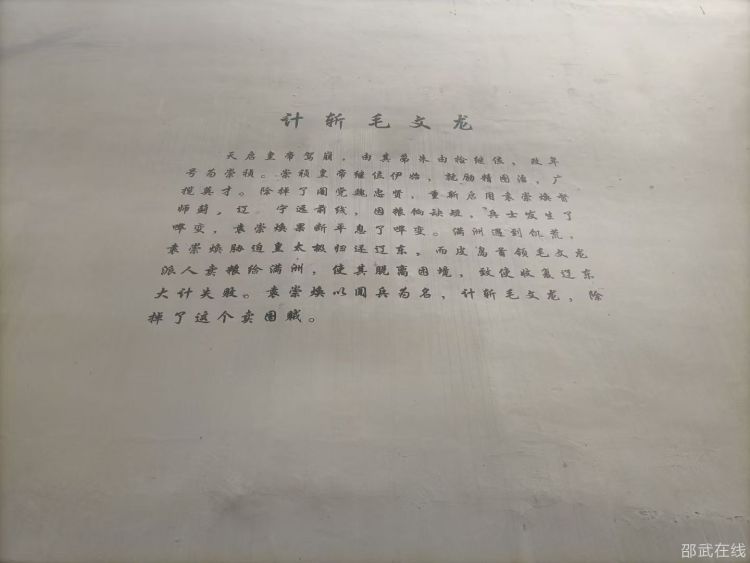 计斩毛文龙
天启皇帝驾崩，由其弟朱由检继位，改年
号为崇祯。崇祯皇帝继位伊始，乾励精图治，广
揽英才。除掉了阉党魏忠贤，重新启用袁崇焕督
师蓟，辽，宁远前线，因粮饷缺短，兵士发生了
哗变，袁崇焕果断平息了哗变。满洲遇到饥荒，
袁崇焕胁迫皇太极归还辽东，而皮岛首领毛文龙
派人卖粮给满洲，使其脱离困境，致使收复辽东
大计失败。袁崇焕以阅兵为名，计斩毛文龙，除
掉了这个卖国贼。
邵武在线